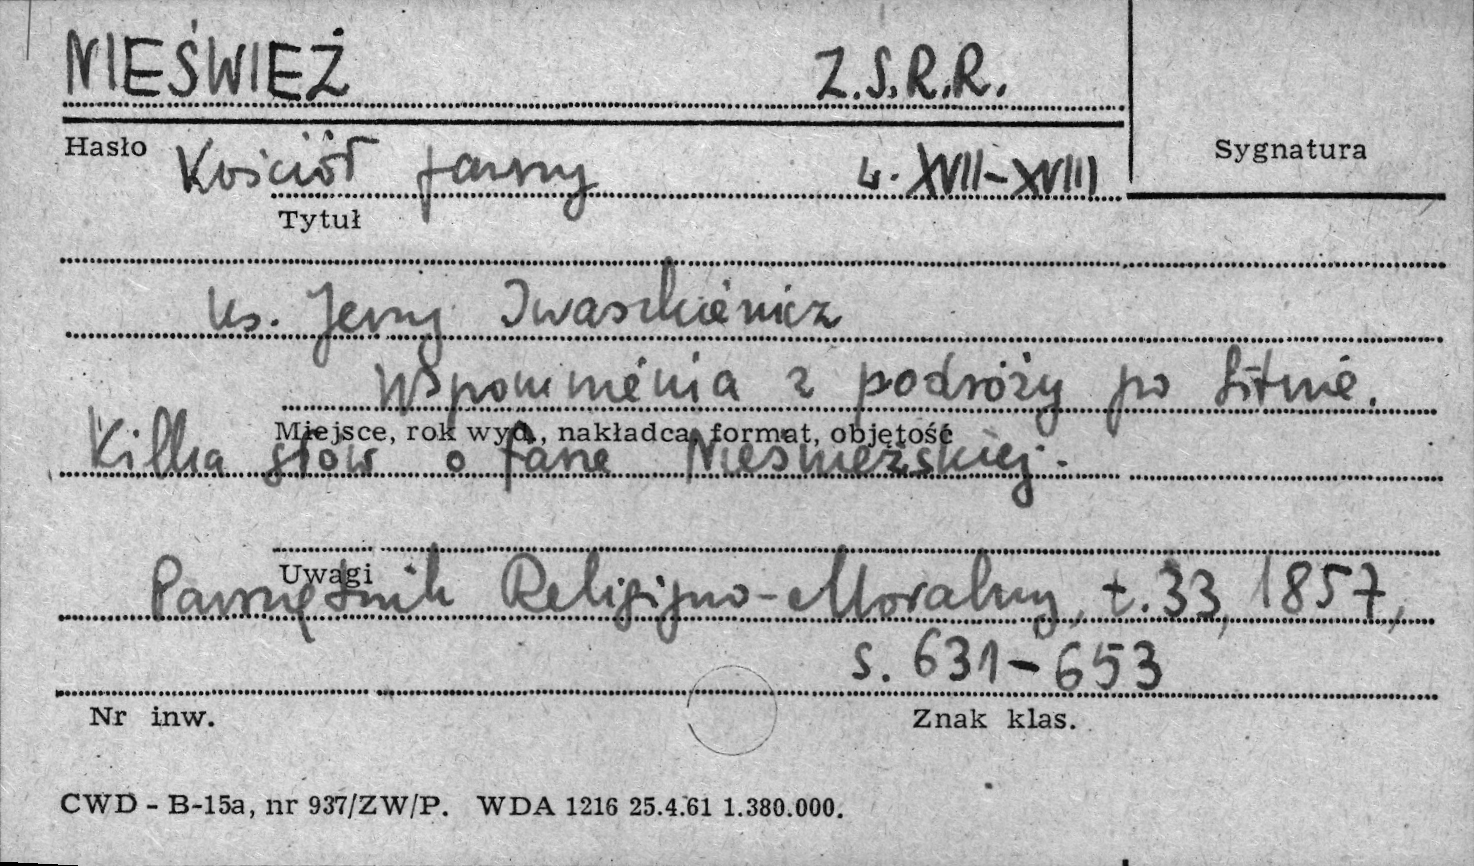 NIEŚWIEŻ Z.S.R.R.
Hasło Sygnatura
Kościół farny w. XVII-XVIII
Tytuł
Ks. Jerzy Iwaszkiewicz
Wspomnienia z podróży po Litwie.
Miejsce, rok wyd., nakładca, format, objętość
Kilka słów o farze Nieświeżskiej.
Uwagi
Pamiętnik Religijno-Moralny, t. 33, 1857,
s. 631-653
Nr inw. Znak klas.
CWD - B-15a, nr 937/ZW/P. WDA 1216 25.4.61 1.380.000.